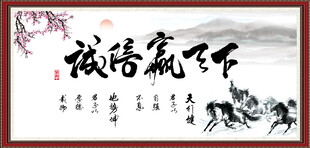 誠信贏天下
天行健
君子以
自强
不息
地势坤
君子以
厚德
载物